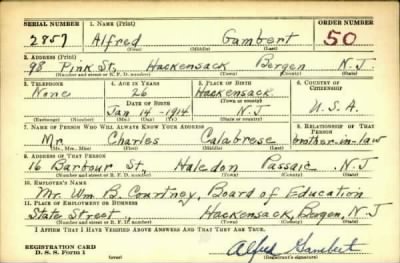 SERIAL NUMBER 1. NAME (Print) ORDER NUMBER
2857 Alfred Gambert 50
(First) (Middle) (Last)
2. ADDRESS (Print)
98 Pink St, Hackensack Bergen N.J
(Number and street or R. F. D. number) (Town) (County) (State)
3. TELEPHONE 4. AGE IN YEARS 5. PLACE OF BIRTH 6. COUNTRY OF CITIZENSHIP
None 26 Hackensack
(Town or county)
DATE OF BIRTH
Jan 14 - 1914 N.J U.S.A.
(Exchange) (No.) (Mo.) (Day) (Yr.) (State or country)
7. NAME OF PERSON WHO WILL ALWAYS KNOW YOUR ADDRESS 8. RELATIONSHIP OF THAT PERSON
Mr. Charles Calabrese brother-in-law
(Mr., Mrs., Miss) (First) (Middle) (Last)
9. ADDRESS OF THAT PERSON
16 Barbour St, Haledon Passaic N.J
(Number and street or R. F. D. number) (Town) (County) (State)
10. EMPLOYER'S NAME
Mr. Wm B. Courtney, Board of Education
11. PLACE OF EMPLOYMENT OR BUSINESS
State Street, Hackensack, Bergen, N.J
(Number and street or R. F. D. number) (Town) (County) (State)
I AFFIRM THAT I HAVE VERIFIED ABOVE ANSWERS AND THAT THEY ARE TRUE.
REGISTRATION CARD
D. S. S. Form 1
Alfred Gambert
(Registrant's signature)